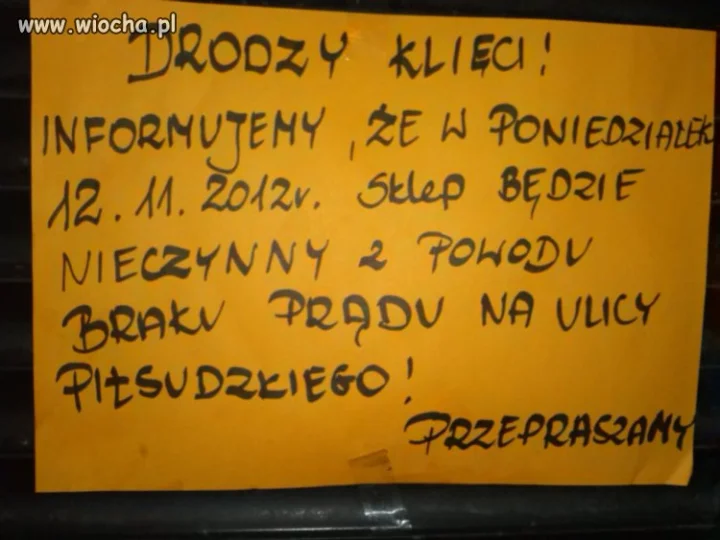 www.wiocha.pl
DRODZY KLIĘCI!
INFORMUJEMY, ŻE W PONIEDZIAŁEK
12.11.2012r. Sklep BĘDZIE
NIECZYNNY z POWODU
BRAKU PRĄDU NA ULICY
PIŁSUDZKIEGO!
PRZEPRASZAMY